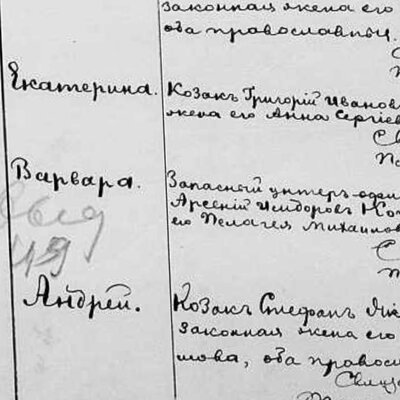 законная жена его
оба православны.
Екатерина.
Козакъ Григорій Иванов
жена его Анна Сергіев
Варвара.
Запасный унтер-офи
Арсеній Исидоровъ Ко
его Пелагея Михаилов
49
Андрей.
Козакъ Стефанъ Як
законная жена его
мова, оба правос
Свящ